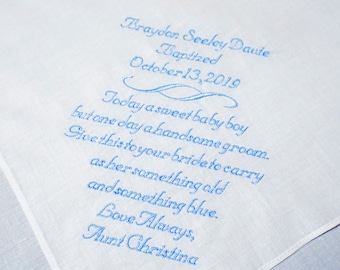 Braydon Seeley Davie
Baptized
October 13, 2019
Today a sweet baby boy
but one day a handsome groom.
Give this to your bride to carry
as her something old
and something blue.
Love Always,
Aunt Christina